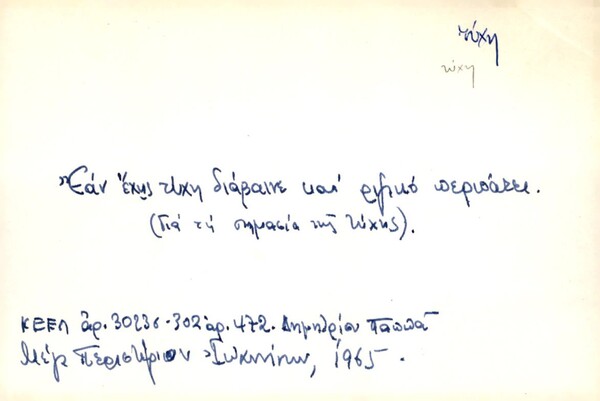 τύχη
τύχη
Ἐὰν ἔχῃς τύχη διάβαινε καὶ ριζικό περπάτει.
(Γιά τή σημασία τῆς τύχης).
ΚΕΕΛ ἀρ. 302 ἀρ. 472. Δημητρίου Παππᾶ
Μέγα Περιστέριον Ἰωαννίνων, 1965.